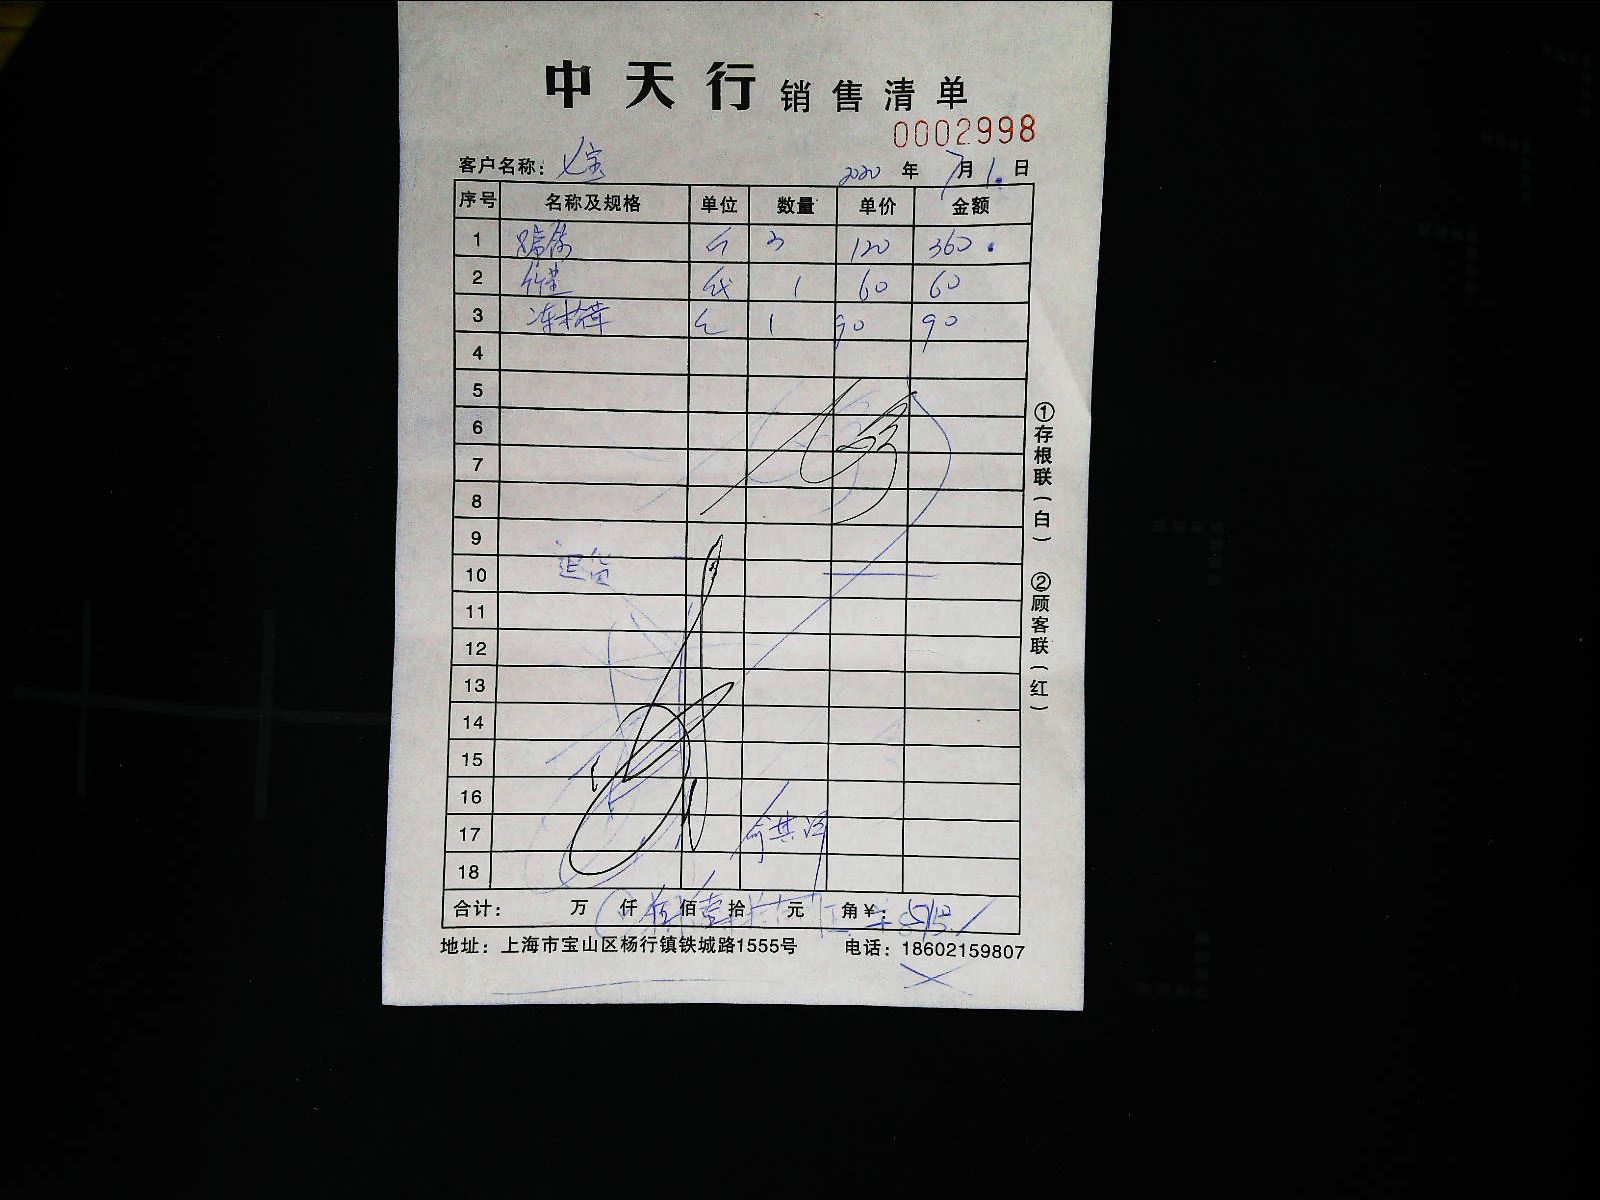 中天行 销售清单
0002998
客户名称: 七宝 2020 年 7月 1 日
序号 名称及规格 单位 数量 单价 金额
1 个 3 120 360
2 1 60 60
3 冻松茸 1 90 90
4
5
6
7
8
9
10 退货
11
12
13
14
15
16
17
18
合计: 万 仟 伍 佰 壹 拾 元 角 ¥: 510
地址: 上海市宝山区杨行镇铁城路1555号 电话: 18602159807
①存根联(白) ②顾客联(红)